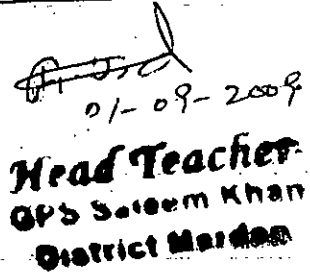 01-09-2009
Head Teacher
GPS Saleem Khan
District Mardan